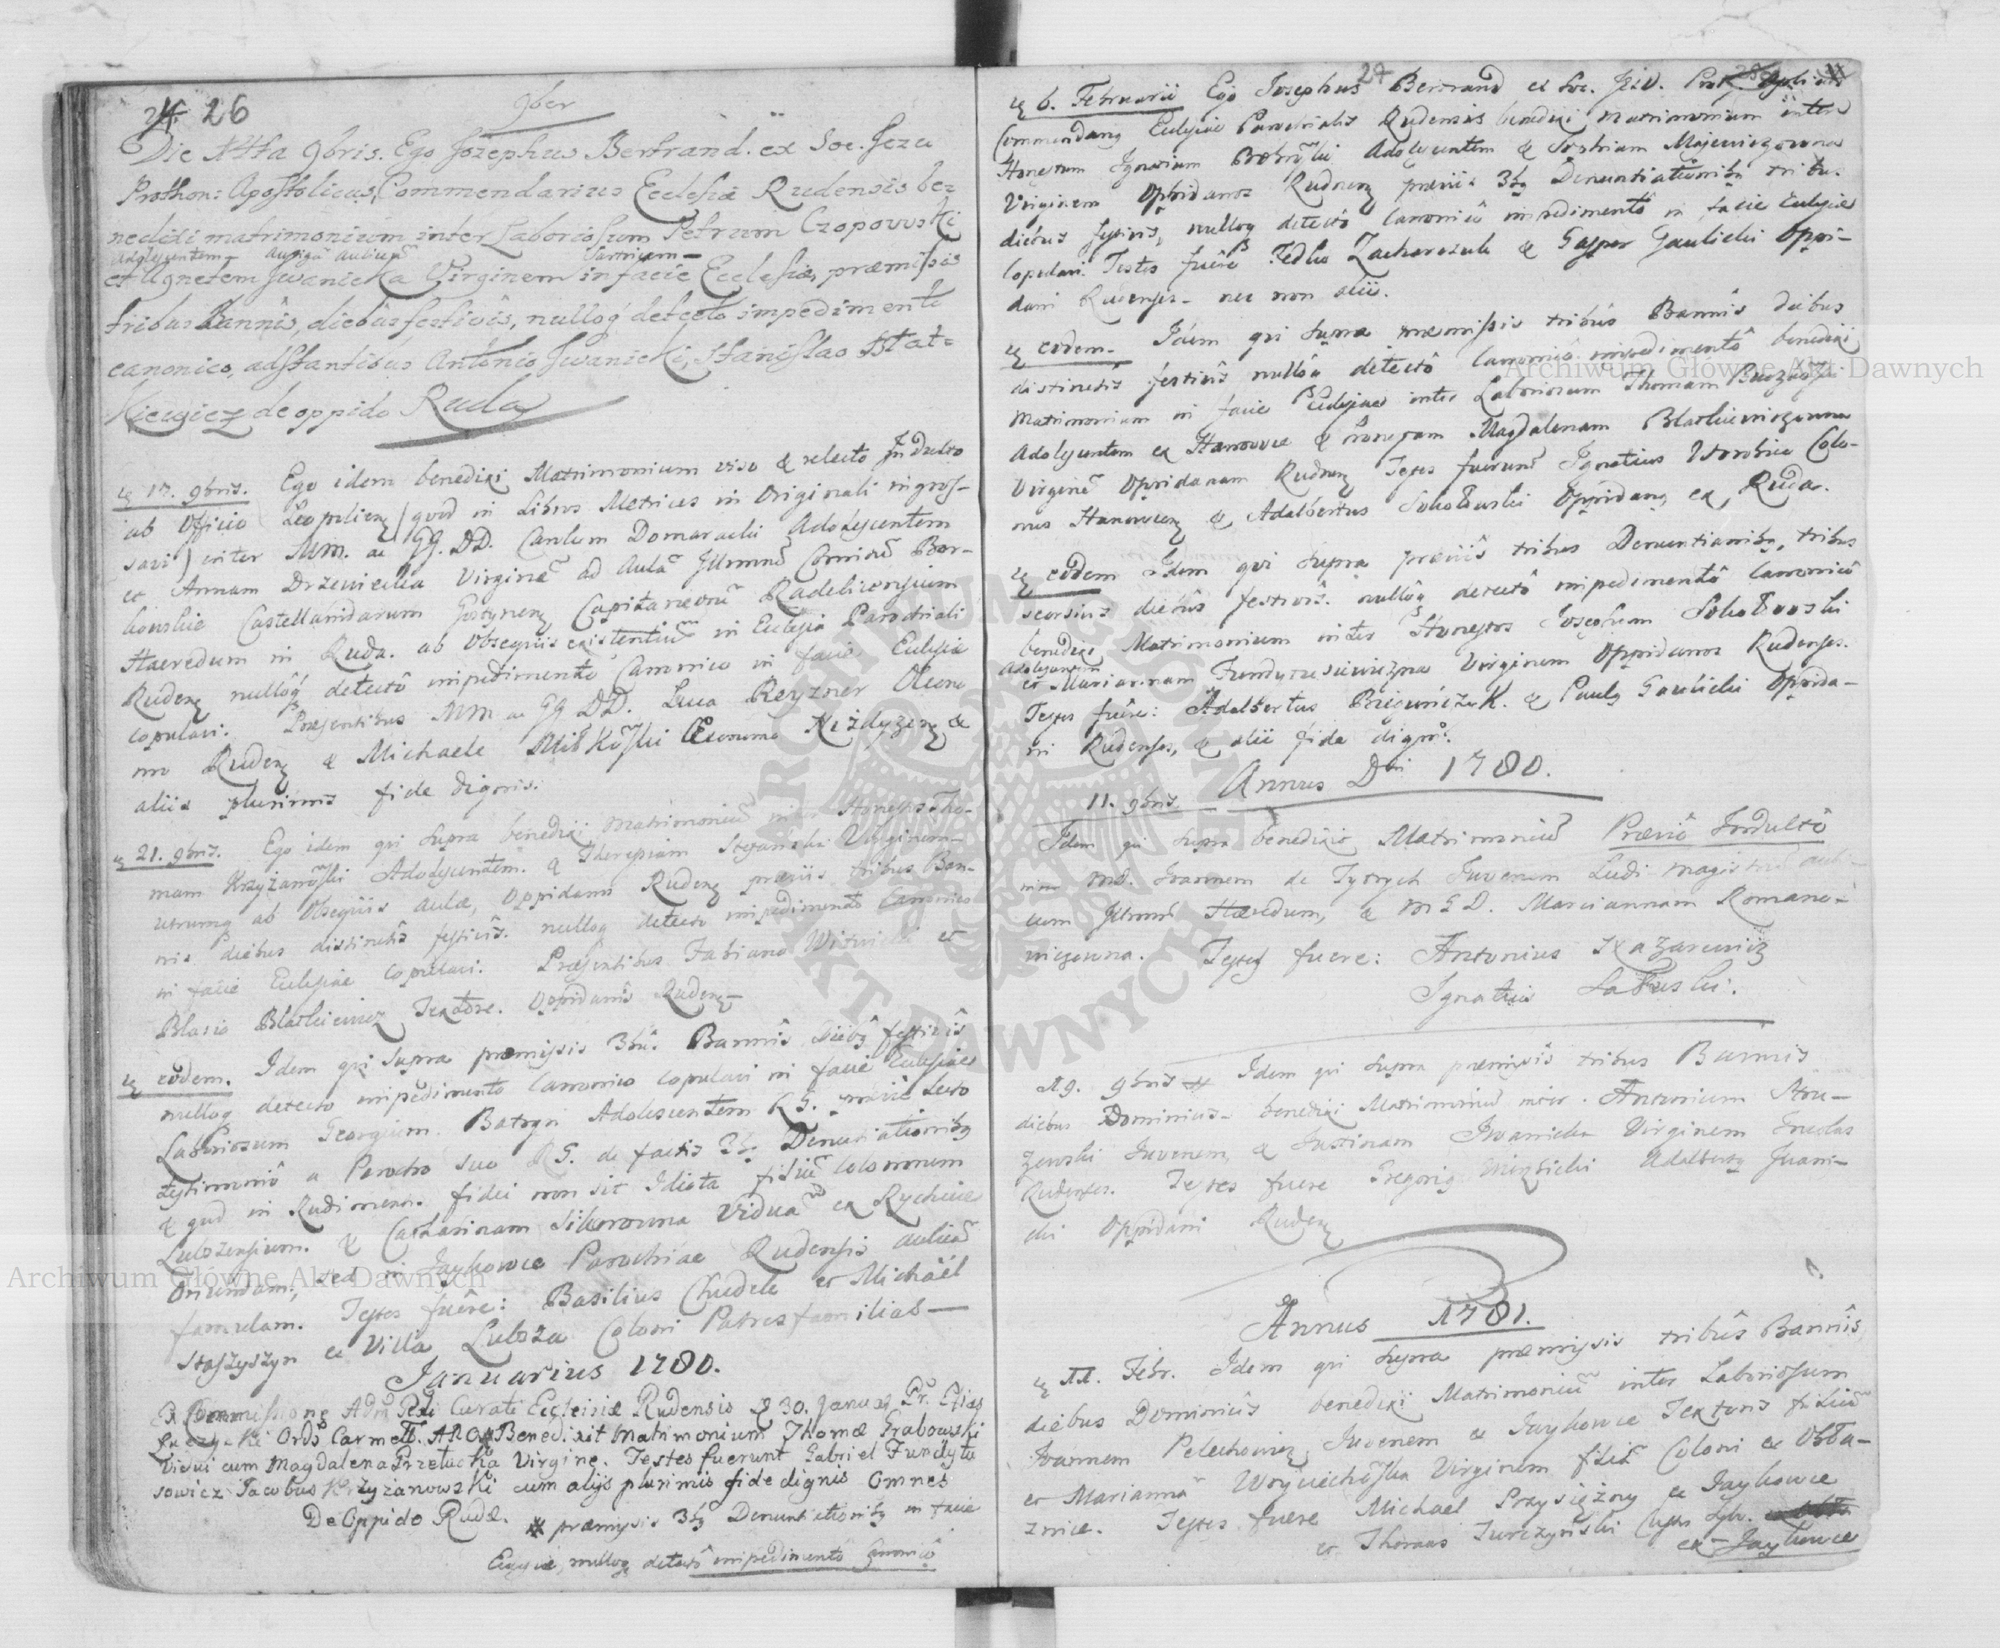 26
9ber
Die 14ta 9bris. Ego Jozephus Bertrand. ex Soc. Jezu
Prothon: Apostolicus, Commendarius Ecclesiæ Rudensis be=
nedixi matrimonium inter Laboriosum Petrum Czopowski
Adolescentem
et Agnetem Jwanicka Virginem in facie Ecclesiæ, præmissis
tribus Bannis, diebus festivis, nulloq detecto impedimento
canonico, adstantibus Antonio Jwanicki, Stanislao Blat=
Kiewicz de oppido Ruda
17. 9bris. Ego idem benedixi Matrimonium viso & relecto Indulto
ab Officio Leopolien (quod in Libros Metrices in Originali ingros-
savi) inter MM. ac GG. DD. Carolum Domaracki Adolescentem
et Annam Drzewiecka Virginē ad Aulā Illmorū Comitū Bor-
kowskie Castellanidarum Gostynen, Capitaneorū Radelicensium
Haeredum in Ruda. ab obsequiis existentiū in Ecclesia Parochiali
Ruden nulloq detectô impedimentô Canonico in facie Ecclesiæ
copulavi. Præsentibus MM ac GG DD. Luca Reyzner Oecono
mo Ruden & Michaele Miłkowski Œconomo &
aliis plurimis fide dignis.
21. 9bris. Ego idem qui supra benedixi Matrimoniū inter Honestos Tho-
mam Krzyżanowski Adolescentem. & Theresiam Stefańska Virginem
utrumq ab Obsequiis aulæ, Oppidanos Ruden præviis tribus Ban-
nis diebus distinctis festivis. nulloq detecto impedimentô Canonico
in facie Ecclesiae copulavi. Præsentibus Fabiano Witwicki et
Blasio Blatkiewicz Textore. Oppidanis Ruden
eodem. Idem qui supra præmissis 3bus. Bannis diebs festivis
nulloq detecto impedimento Canonico copulavi in facie Ecclesiae
Laboriosum Georgium Batogn Adolescentem RG. prævie lecto
testimoniô a Parocho suo RG. de factis 3bs Denuntiationibs
& quod in Rudiment. fidei non sit Idiota filiū Colonorum
Lubszensium. & Catharinam Sikorowna Viduā ex Rychcice
Oriundam, sed in Jaykowce Parochiae Rudensis aulicā
famulam. Testes fuêre: Basilius Chudek et Michaël
Staszyszyn ex Villa Lubsza Coloni Patres familias
Januarius 1780.
Ex Commissione Adm Rdi Curati Ecclesiæ Rudensis 30. Januar Pr. Elias
Ords Carmelt. A.R.O. Benedixit Matrimonium Thomæ Grabowski
Vidui cum Magdalena Przetacka Virgine. Testes fuerunt Gabriel Fundytu
sowicz Jacobus Krzyżanowski cum alijs plurimis fide dignis omnes
De Oppido Rudæ. præmissis 3bs Denuntiationibs in facie
Ecclesiæ, nulloq detectô impedimentô Canonicô
27
6. Februarii Ego Josephus Bertrand ex Soc. Jezu. Prot. Aplicus
Commendarius Ecclesiae Parochialis Rudensis benedixi Matrimonium inter
Honestum Ignatium Adolescentem & Sophiam
Virginem Oppidanos Rudnen præviis 3bs Denuntiationibs tribus
diebus festivis, nulloq detectô canonicô impedimentô in facie Ecclesiae
copulavi. Testes fuêre Fedko Zacharczuk & Gasper Gawlicki Oppi-
dani Rudenses nec non alii.
eodem. Idem qui supra præmissis tribus Bannis diebus
distinctis festivis nulloq detectô Canonicô impedimentô benedixi
Matrimonium in facie Ecclesiae inter Laboriosum Thomam
Adolescentem ex Hanowce & Honestam Magdalenam Blatkiewiczowna
Virginē Oppidanam Rudnen Testes fuerunt Ignatius Worobiec Colo-
nus Hanowcen & Adalbertus Sokołowski Oppidans ex Ruda.
eodem Idem qui supra præviis tribus Denuntiationibs, tribus
seorsivis diebus festivis. nulloq detectô impedimentô Canonicô
benedixi Matrimonium inter Honestos Josephum Sokołowski
Adolescentem
et Mariannam Fundytusiewiczowna Virginem Oppidanos Rudenses.
Testes fuêre: Adalbertus & Pauls Gawlicki Oppida-
ni Rudenses, & alii fide digni.
Annus Dni 1780.
11. 9bris
Idem qui supra benedixi Matrimoniū Præviô Indultô
inter MD. Joannem de Juvenem Ludi magistrū auli-
cum Illmorū Hæredum, & MGD. Mariannam Romano-
wiczowna. Testes fuere: Antonius Nazarewicz
Ignatius
19. 9bris Idem qui supra præmissis tribus Bannis
diebus Dominicis benedixi Matrimoniū inter Antonium Stru-
zewski Juvenem, & Justinam Jwanicka Virginem Incolas
Rudenses. Testes fuere Gregorig Adalberts Jwani-
cki Oppidani Ruden
Annus 1781.
11. Febr. Idem qui supra præmissis tribûs Bannis
diebus Dominicis benedixi Matrimoniū inter Laboriosum
Joannem Pelechowicz Juvenem ex Jaykowce Textoris filiū
et Mariannā Woyciechowska Virginem filiā Coloni ex Obła-
znice. Testes fuere Michael Przysiężny ex Jaykowce
et Thomas Jurczyński
ex Jaykowce
Archiwum Główne Akt Dawnych
Archiwum Główne Akt Dawnych
ARCHIWUM GŁÓWNE AKT DAWNYCH